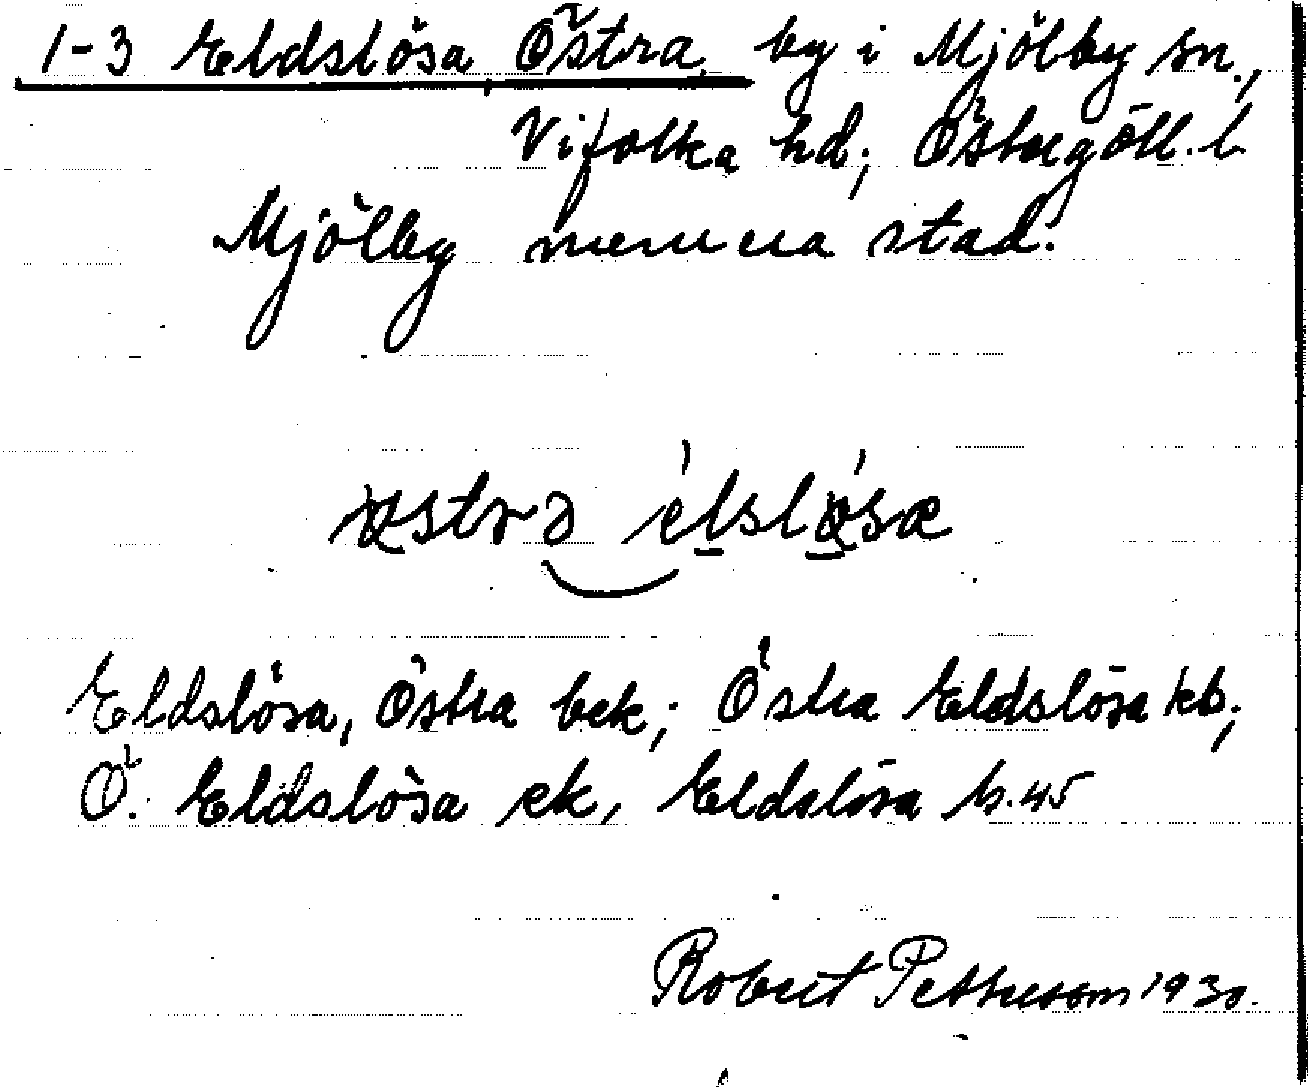 1-3 Eldslösa, Östra, by i Mjölby sn.,
Vifolka hd; Östergötl. l.
Mjölby numera stad.
Eldslösa, Östra bek; Östra Eldslösa kb;
Ö. Eldslösa ek, Eldslösa h. 45
Robert Pettersson 1930.